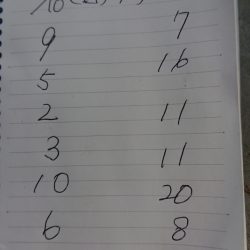 9 7
5 16
2 11
3 11
10 20
6 8